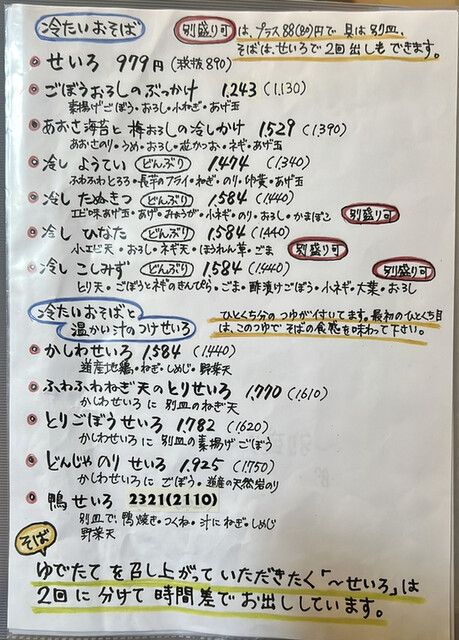 冷たいおそば
別盛り可 は、プラス88(80)円で 具は別皿、
そばは、せいろで2回出しもできます。
せいろ 979円 (税抜890)
ごぼうおろしのぶっかけ 1,243 (1,130)
素揚げごぼう・おろし・小ねぎ・あげ玉
あおさ海苔と梅おろしの冷しかけ 1,529 (1,390)
あおさのり・うめ・おろし・花かつお・ネギ・あげ玉
冷し ようてい どんぶり 1,474 (1,340)
ふわふわとろろ・長芋のフライ・ねぎ・のり・卵黄・あげ玉
冷し たぬきつ どんぶり 1,584 (1,440)
エビ味あげ玉・あげ・みょうが・小ネギ・のり・おろし・かまぼこ 別盛り可
冷し ひなた どんぶり 1,584 (1,440)
小エビ天・おろし・ネギ天・ほうれん草・ごま 別盛り可
冷し こしみず どんぶり 1,584 (1,440) 別盛り可
とり天・ごぼうとネギのきんぴら・ごま・酢漬けごぼう・小ネギ・大葉・おろし
冷たいおそばと
温かい汁のつけせいろ
ひとくち分のつゆが付いてます。最初のひとくち目
は、このつゆでそばの食感を味わって下さい。
かしわせいろ 1,584 (1,440)
道産地鶏・ねぎ・しめじ・野菜天
ふわふわねぎ天のとりせいろ 1,770 (1,610)
かしわせいろに 別皿のねぎ天
とりごぼうせいろ 1,782 (1,620)
かしわせいろに 別皿の素揚げごぼう
どんじゃのり せいろ 1,925 (1,750)
かしわせいろに ごぼう・道産の天然岩のり
鴨せいろ 2321(2110)
別皿で、鴨焼き・つくね・汁にねぎ・しめじ
野菜天
そば
ゆでたてを召し上がっていただきたく「〜せいろ」は
2回に分けて時間差でお出ししています。